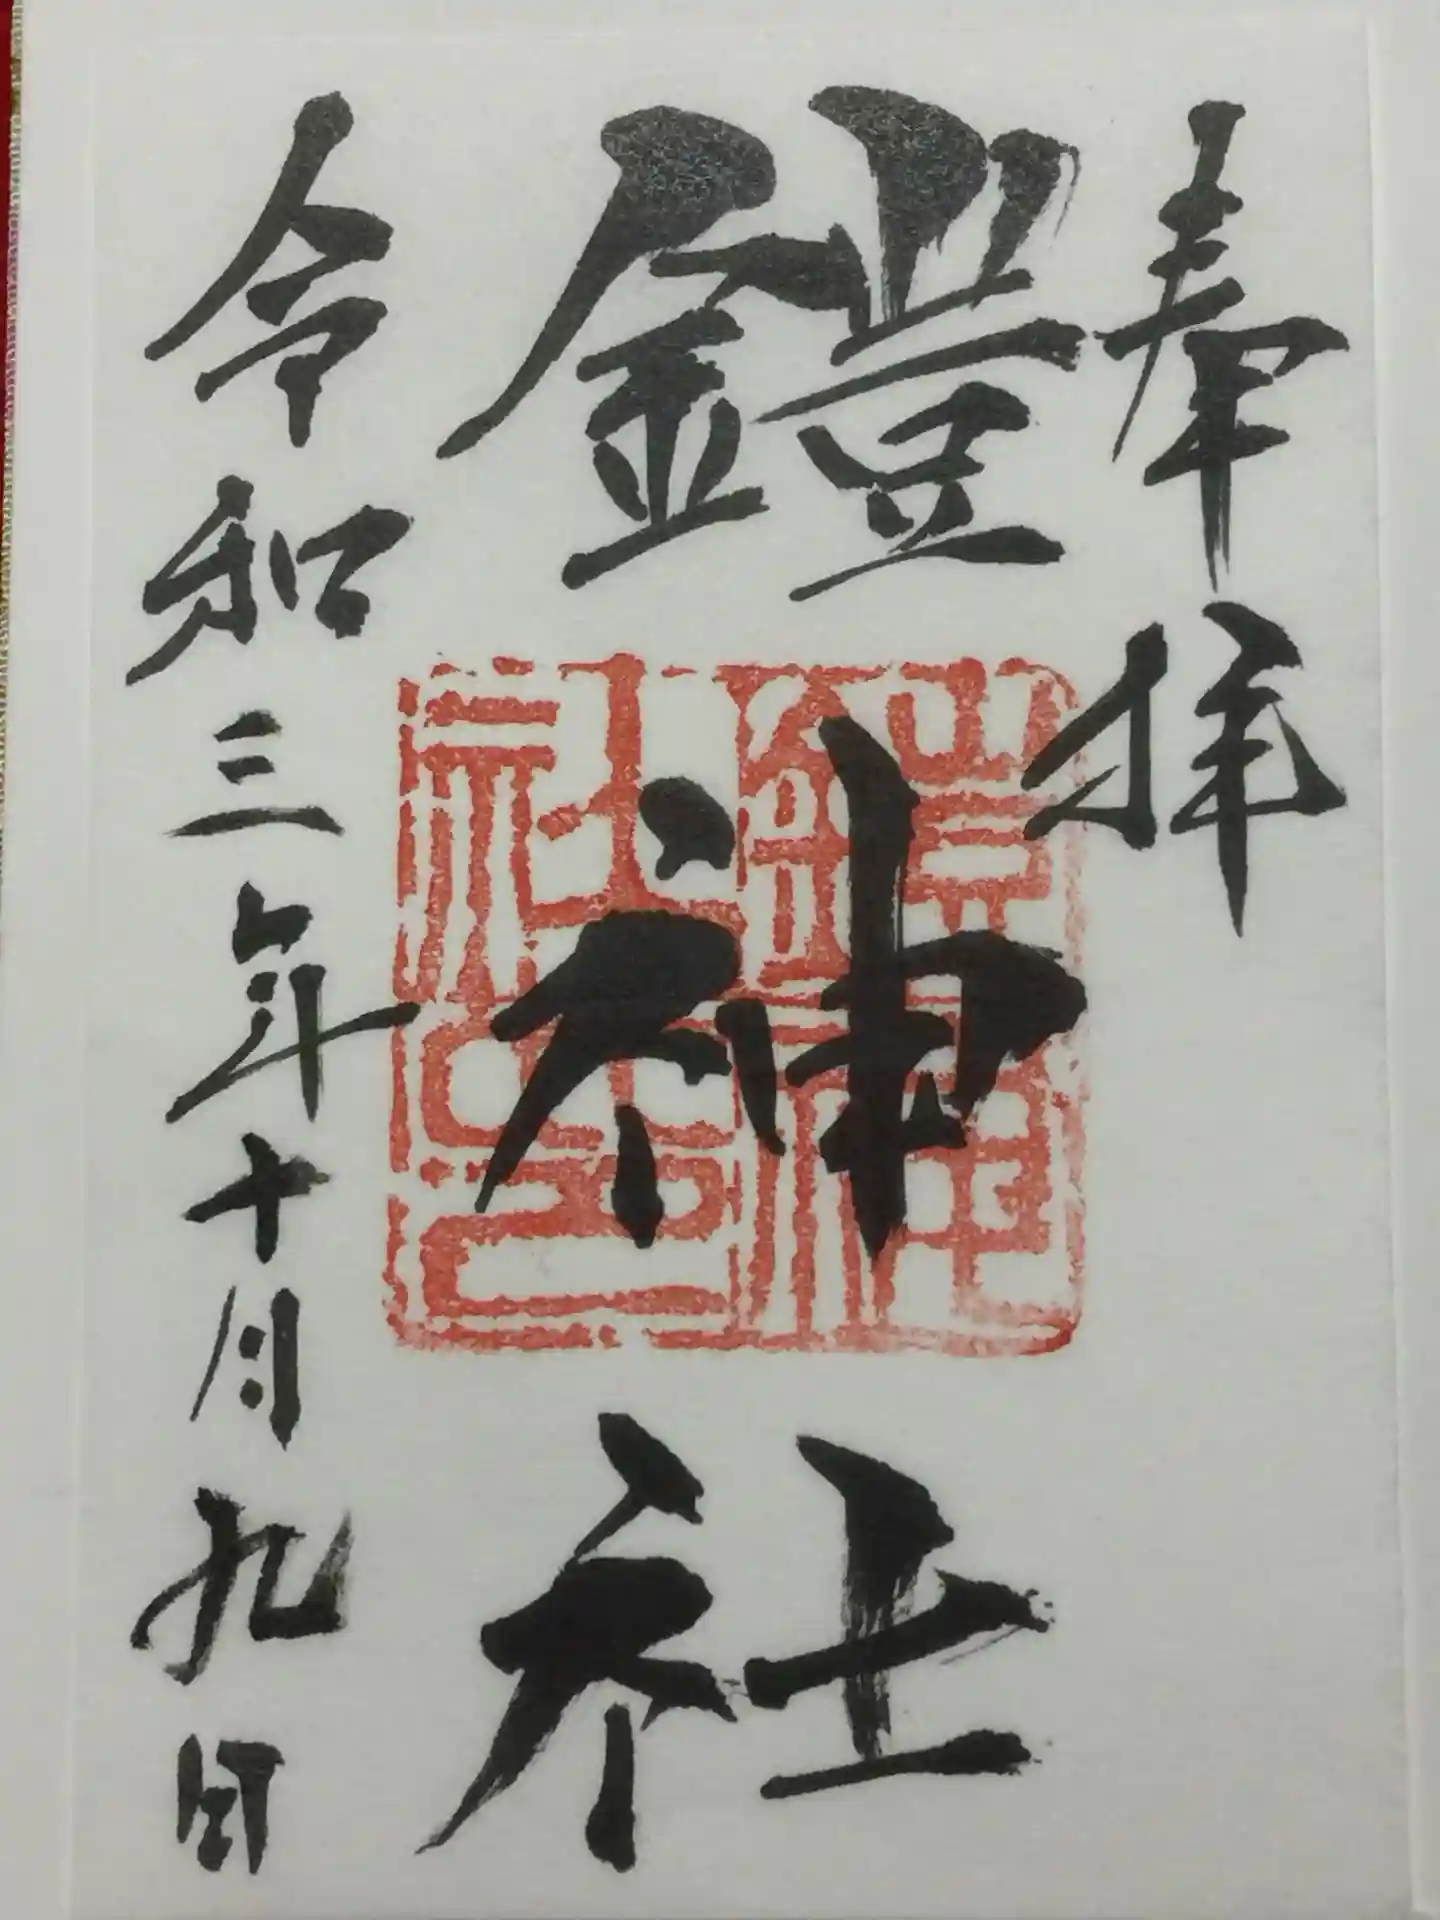 奉拝
鎧神社
令和三年十月九日
鎧神社之印